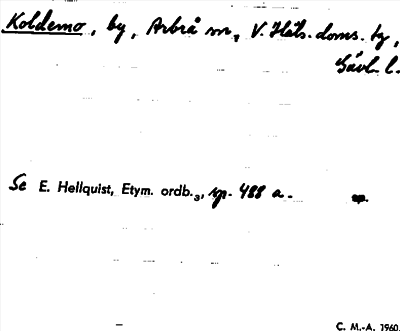 Koldemo, by, Arbrå sn, V. Häls. doms. tg,
Gävl. l.
Se E. Hellquist, Etym. ordb.3, sp. 488 a.
C. M.-A. 1960.